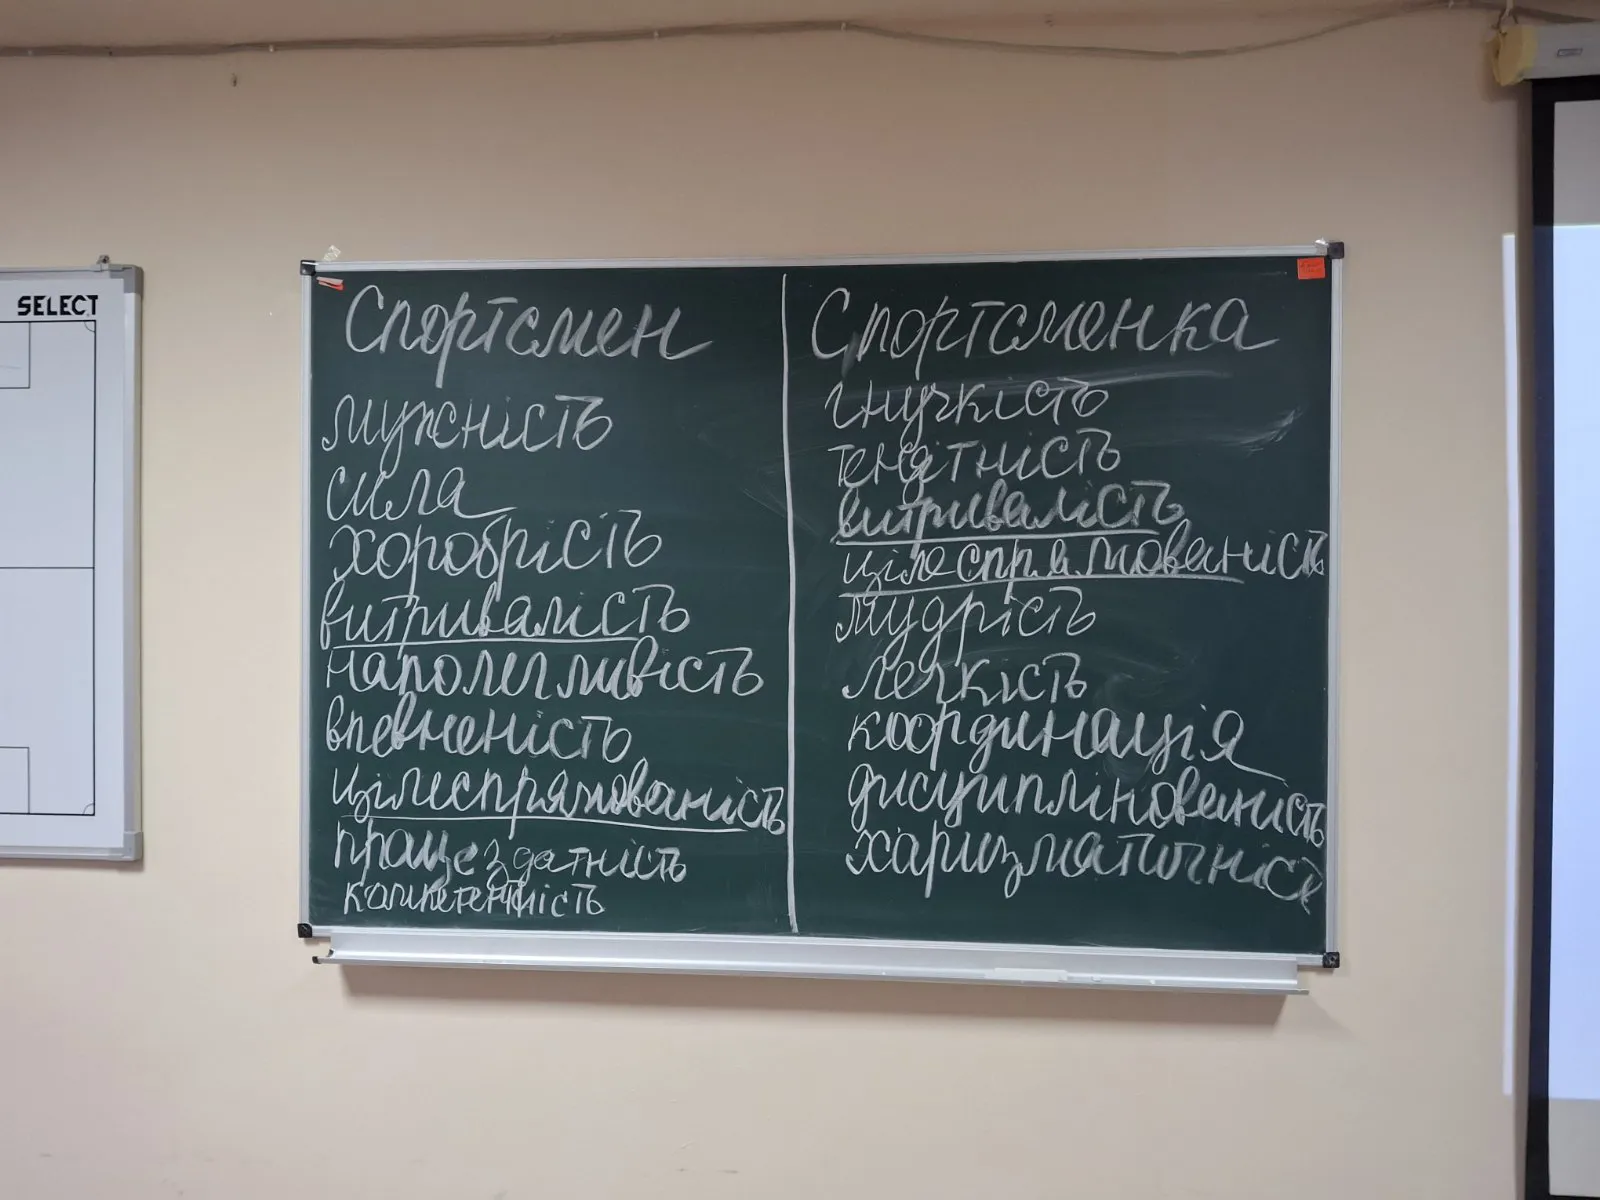 SELECT
Спортсмен
мужність
сила
хоробрість
витривалість
наполегливість
впевненість
цілеспрямованість
працездатність
компетентність
Спортсменка
гнучкість
тендітність
витривалість
цілеспрямованість
мудрість
легкість
координація
дисциплінованість
харизматичність